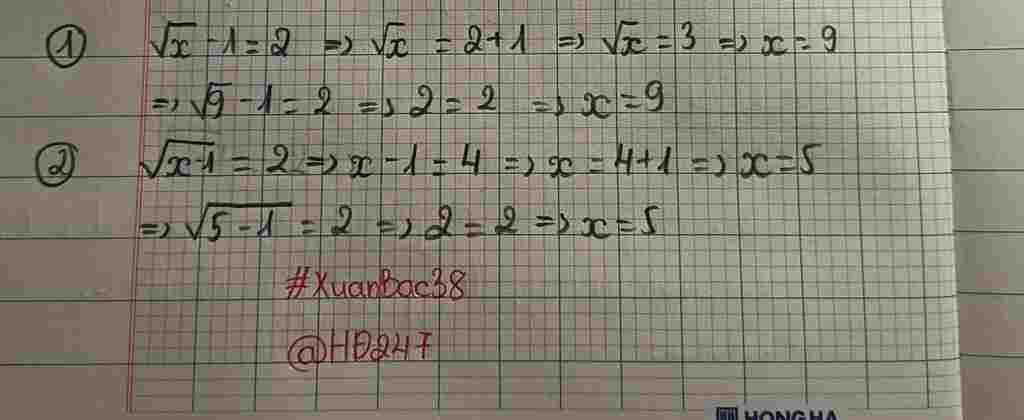 ① √x - 1 = 2 => √x = 2+1 => √x = 3 => x = 9
=> √9 - 1 = 2 => 2 = 2 => x = 9
② √(x-1) = 2 => x - 1 = 4 => x = 4+1 => x = 5
=> √(5-1) = 2 => 2 = 2 => x = 5
#XuanBac38
@HD247
HONG HA